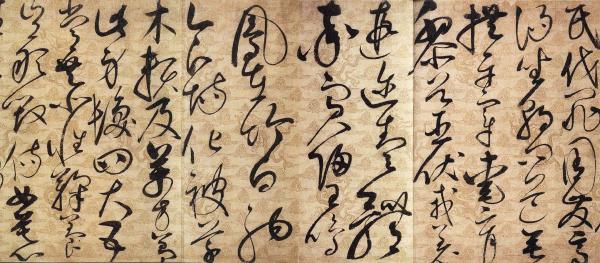 民伐罪周發商
湯坐朝問道垂
拱平章愛育
黎首臣伏戎羌
遐邇壹體
率賓歸王鳴
鳳在竹白駒
食場化被草
木賴及萬方蓋
此身髮四大五
常恭惟鞠養
豈敢毀傷女慕